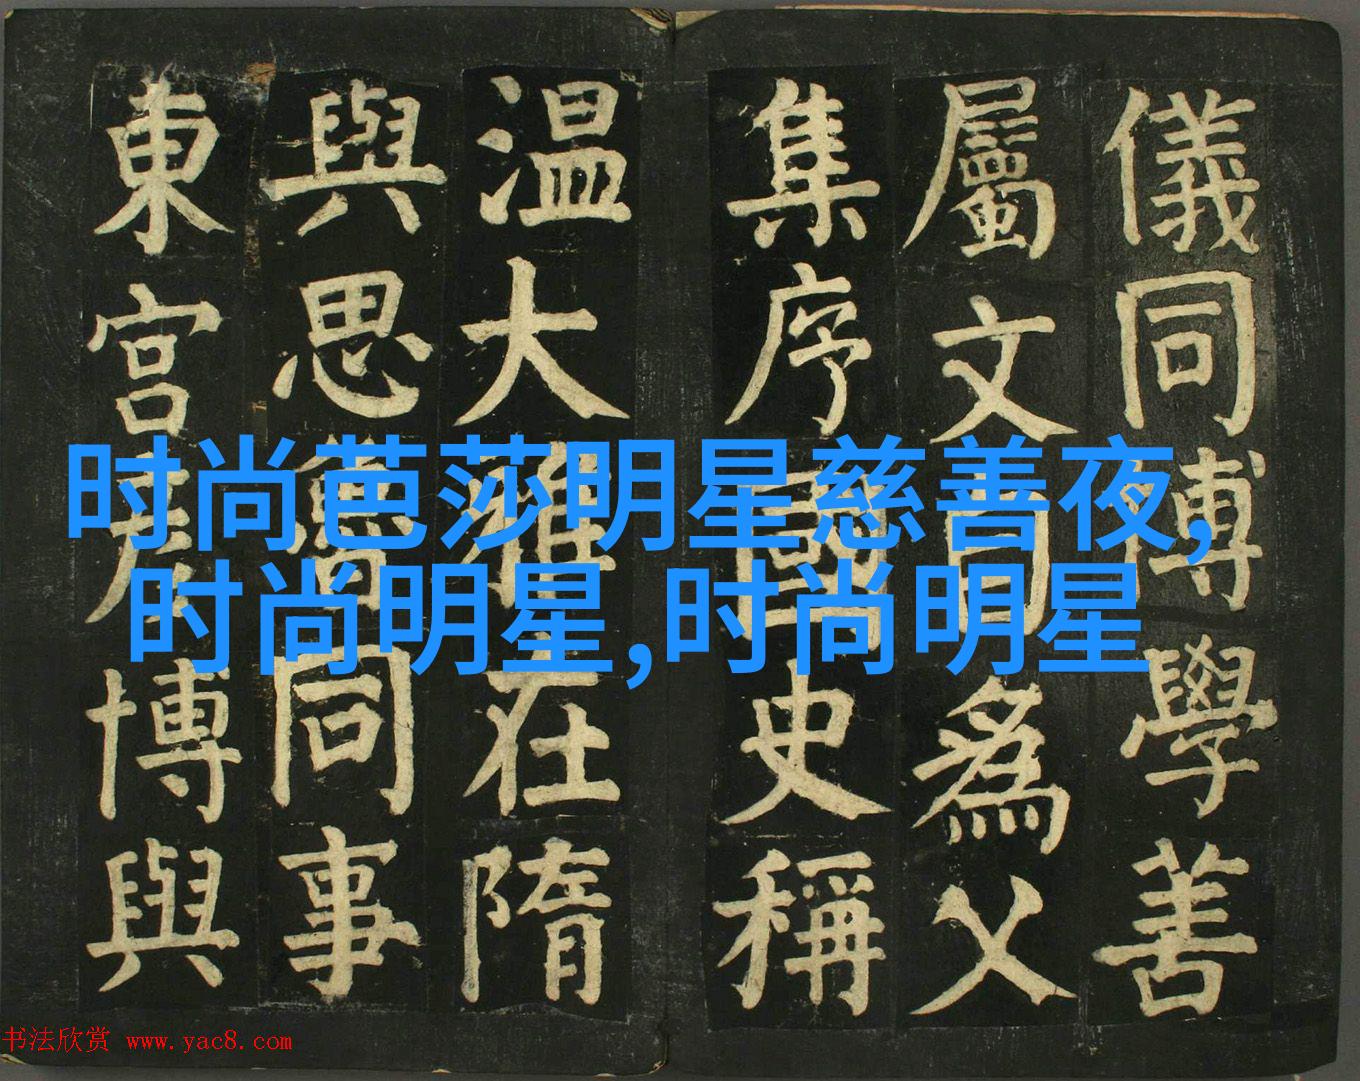 儀同博學善
屬文自為父
集序國史稱
温大雅在隋
與思魯同事
東宮彦博與
时尚芭莎明星慈善夜,
时尚明星,时尚明星
书法欣赏 www.yac8.com